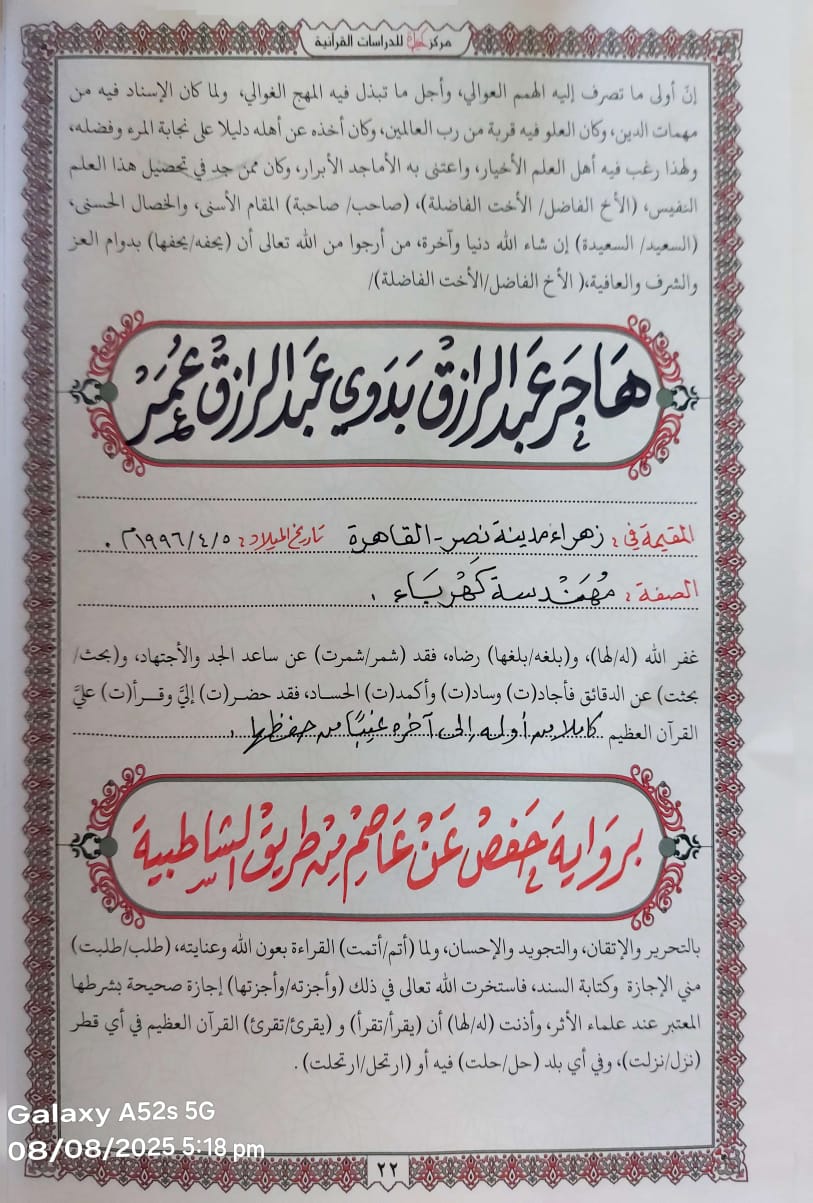 مركز للدراسات القرآنية
إنّ أولى ما تصرف إليه الهمم العوالي، وأجل ما تبذل فيه المهج الغوالي، ولما كان الإسناد فيه من
مهمات الدين، وكان العلو فيه قربة من رب العالمين، وكان أخذه عن أهله دليلا على نجابة المرء وفضله،
ولهذا رغب فيه أهل العلم الأخيار، واعتنى به الأماجد الأبرار، وكان ممن جد في تحصيل هذا العلم
النفيس، (الأخ الفاضل/ الأخت الفاضلة)، (صاحب/ صاحبة) المقام الأسنى، والخصال الحسنى،
(السعيد/ السعيدة) إن شاء الله دنيا وآخرة، من أرجوا من الله تعالى أن (يحفه/يحفها) بدوام العز
والشرف والعافية،( الأخ الفاضل/الأخت الفاضلة)/
هَاجَر عَبْد الرازقْ بَدَوي عَبْد الرازقْ عُمَرْ
المقيمة في: زهراء مدينة نصر - القاهرة تاريخ الميلاد: ١٩٩٦/٤/٥م.
الصفة: مُهَنْدسة كَهْربَاء .
غفر الله (له/لها)، و(بلغه/بلغها) رضاه، فقد (شمر/شمرت) عن ساعد الجد والأجتهاد، و(بحث/
بحثت) عن الدقائق فأجاد(ت) وساد(ت) وأكمد(ت) الحساد، فقد حضر(ت) إليَّ وقـرأ(ت) عليَّ
القرآن العظيم كاملا من أوله إلى آخره غيبًا من حفظها .
بروَاية حَفصْ عَنْ عَاصِمْ مِنْ طريقْ الشاطبية
بالتحرير والإتقان، والتجويد والإحسان، ولما (أتم/أتمت) القراءة بعون الله وعنايته، (طلب/طلبت)
مني الإجازة وكتابة السند، فاستخرت الله تعالى في ذلك (وأجزته/وأجزتها) إجازة صحيحة بشرطها
المعتبر عند علماء الأثر، وأذنت (له/لها) أن (يقرأ/تقرأ) و (يقرئ/تقرئ) القرآن العظيم في أي قطر
(نزل/نزلت)، وفي أي بلد (حل/حلت) فيه أو (ارتحل/ارتحلت) .
٢٢
Galaxy A52s 5G
08/08/2025 5:18 pm